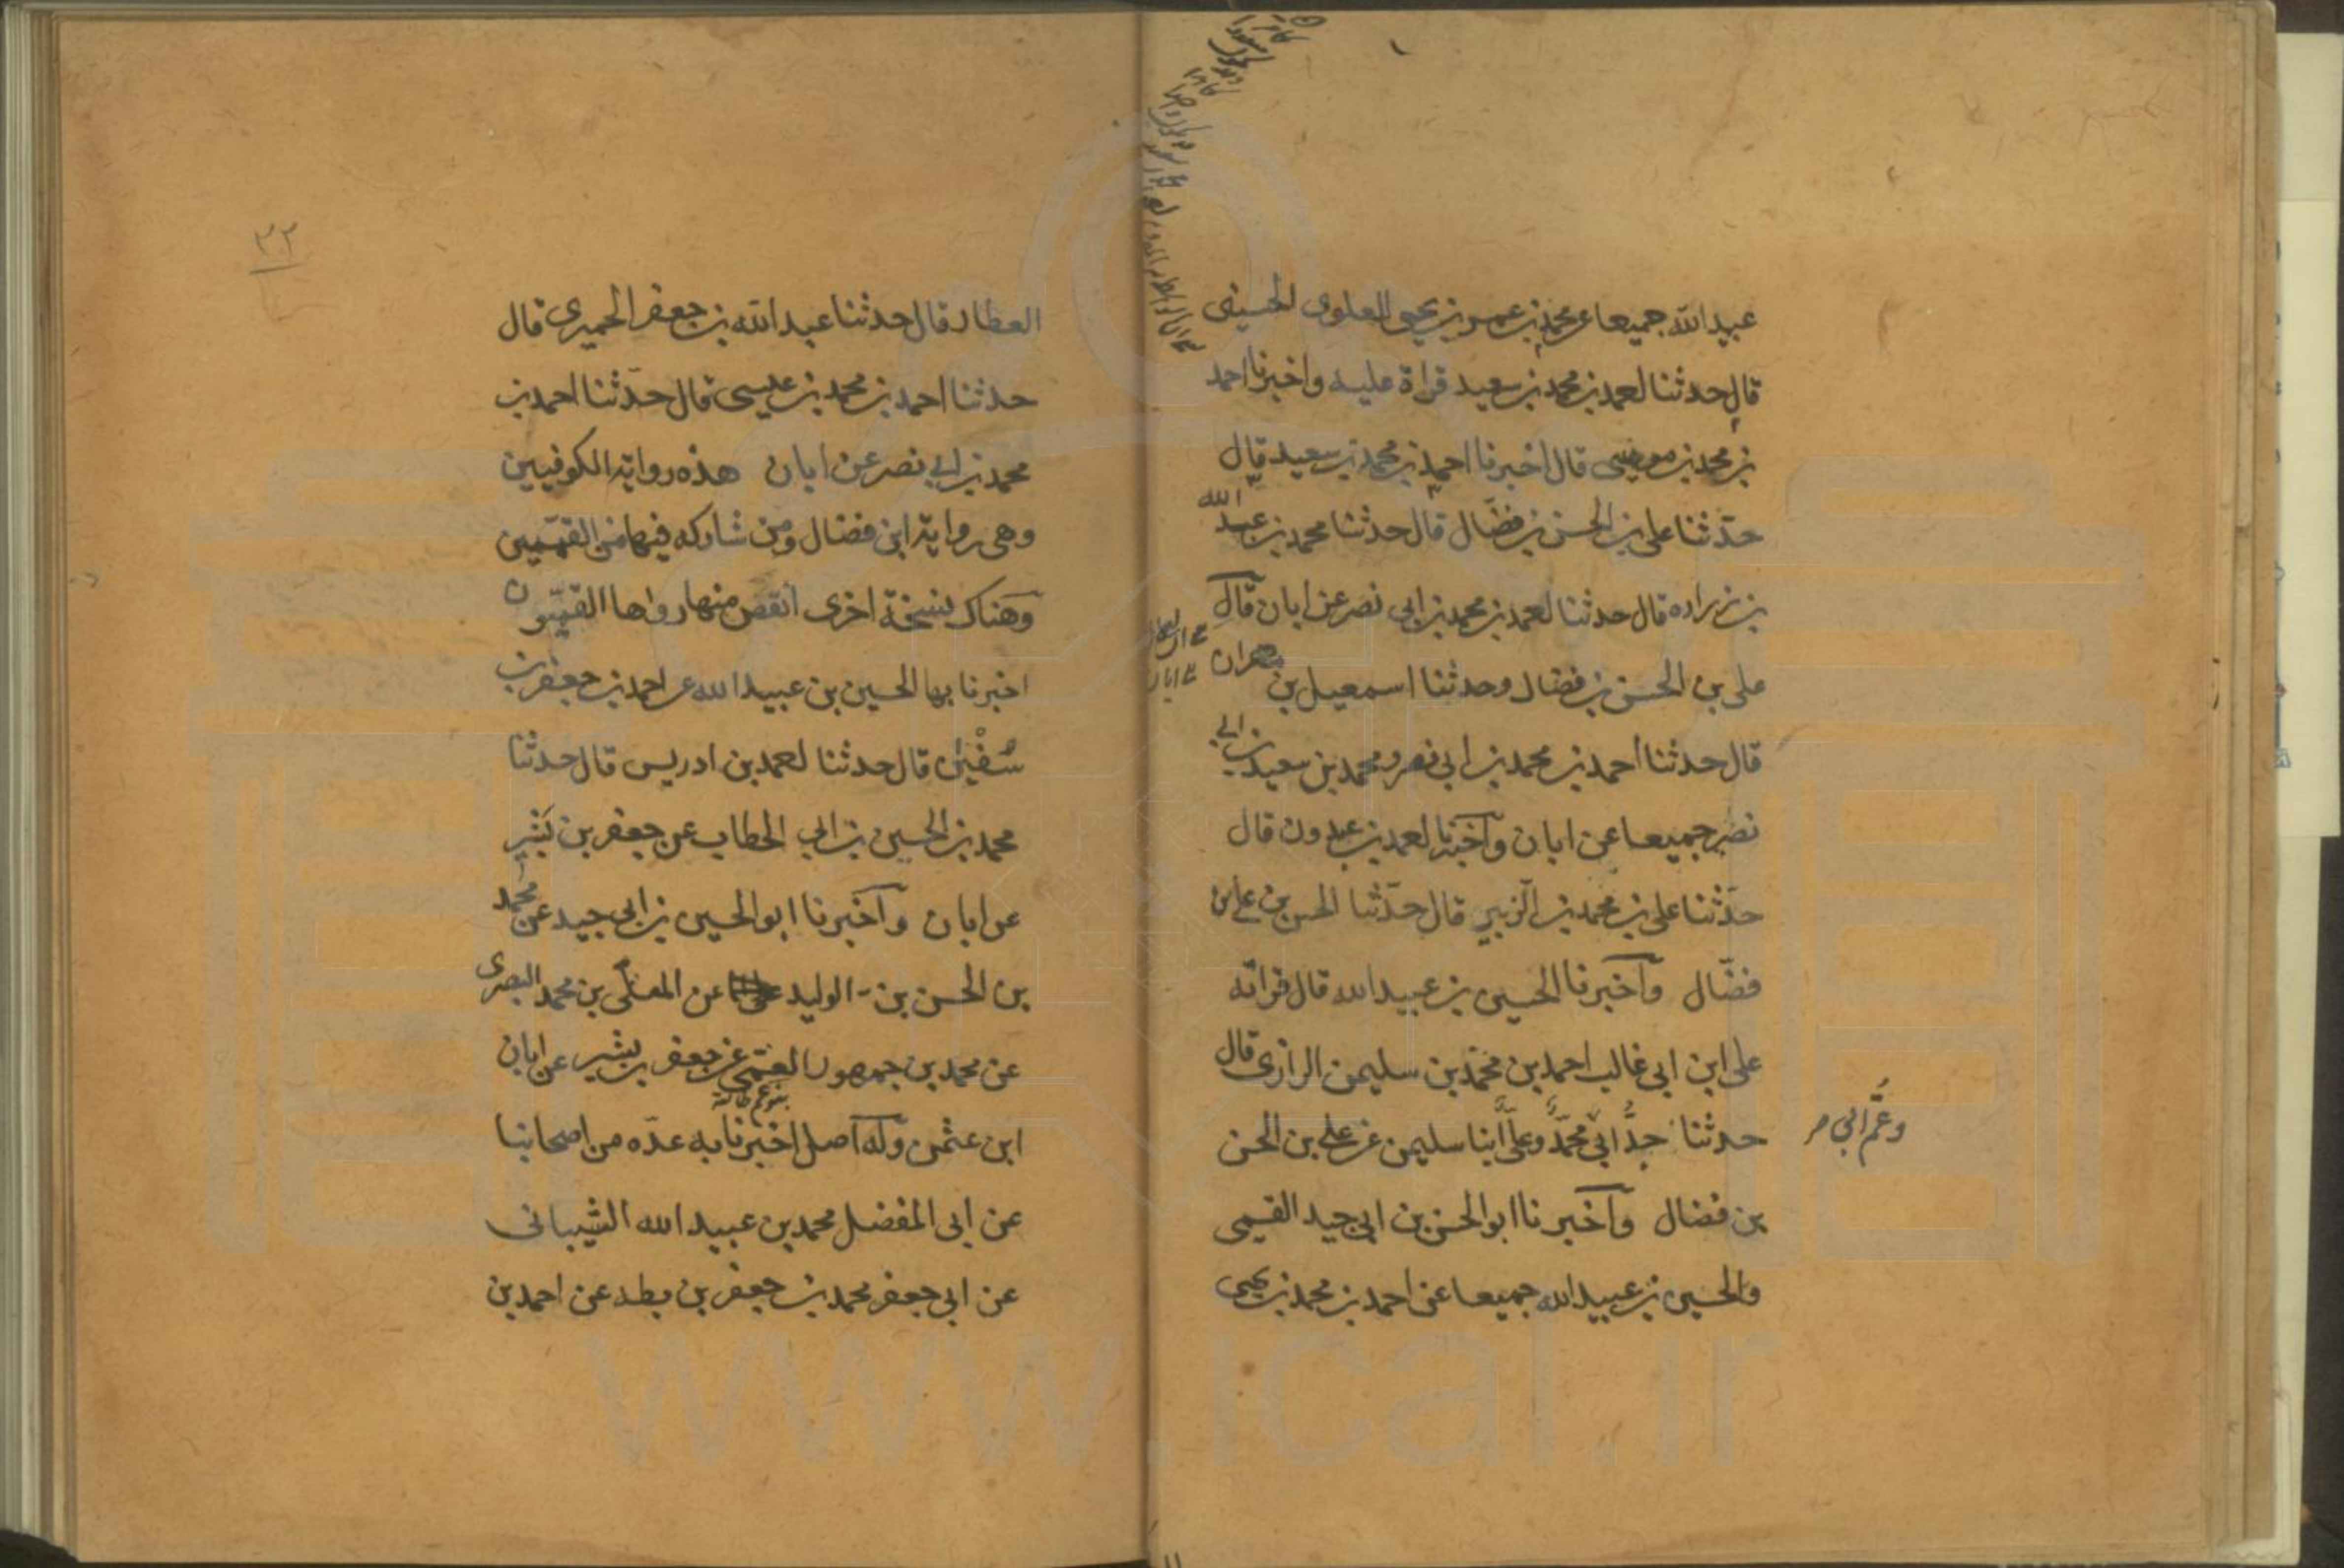 عبيدالله جميعا عن محمد بن عمر بن يحيى العلوى الحسينى
قال حدثنا احمد بن محمد بن سعيد قراة عليه واخبرنا احمد
بن محمد بن موسى قال اخبرنا احمد بن محمد بن سعيد قال
حدّثنا على بن الحسن بن فضّال قال حدثنا محمد بن عبد الله
بن زراره قال حدثنا احمد بن محمد بن ابى نصر عن ابان قال
على بن الحسن بن فضال وحدثنا اسمعيل بن مهران
قال حدثنا احمد بن محمد بن ابى نصر ومحمد بن سعيد بن ابى
نصر جميعا عن ابان وآخبرنا احمد بن عبدون قال
حدّثنا على بن محمد بن الزبير قال حدّثنا الحسن بن على بن
فضّال وآخبرنا الحسين بن عبيدالله قال قراته
على ابن ابى غالب احمد بن محمد بن سليمن الرازى قال
حدثنا جدّ ابى محمّد وعلىّ ابنا سليمن عن على بن الحسن
وعمّ ابى
بن فضال وآخبرنا ابو الحسن بن ابى جيد القمى
والحسين بن عبيدالله جميعا عن احمد بن محمد بن يحيى
٣٢
العطار قال حدثنا عبدالله بن جعفر الحميرى قال
حدثنا احمد بن محمد بن عيسى قال حدّثنا احمد بن
محمد بن ابى نصر عن ابان هذه رواية الكوفيين
وهى رواية ابن فضال ومن شاركه فيها من القمّيين
وهناك نسخة اخرى انقص منها رواها القميّون
اخبرنا بها الحسين بن عبيدالله عن احمد بن جعفر بن
سُفْيٰن قال حدثنا احمد بن ادريس قال حدثنا
محمد بن الحسين بن ابى الخطاب عن جعفر بن بشير
عن ابان وآخبرنا ابو الحسين بن ابى جيد عن محمد
بن الحسن بن الوليد عن المعلّى بن محمد البصرى
عن محمد بن جمهور العمّى عن جعفر بن بشير عن ابان
ابن عثمن وله آصل اخبرنا به عدّه من اصحابنا
عن ابى المفضل محمد بن عبيدالله الشيبانى
عن ابى جعفر محمد بن جعفر بن بطه عن احمد بن
www.ical.ir